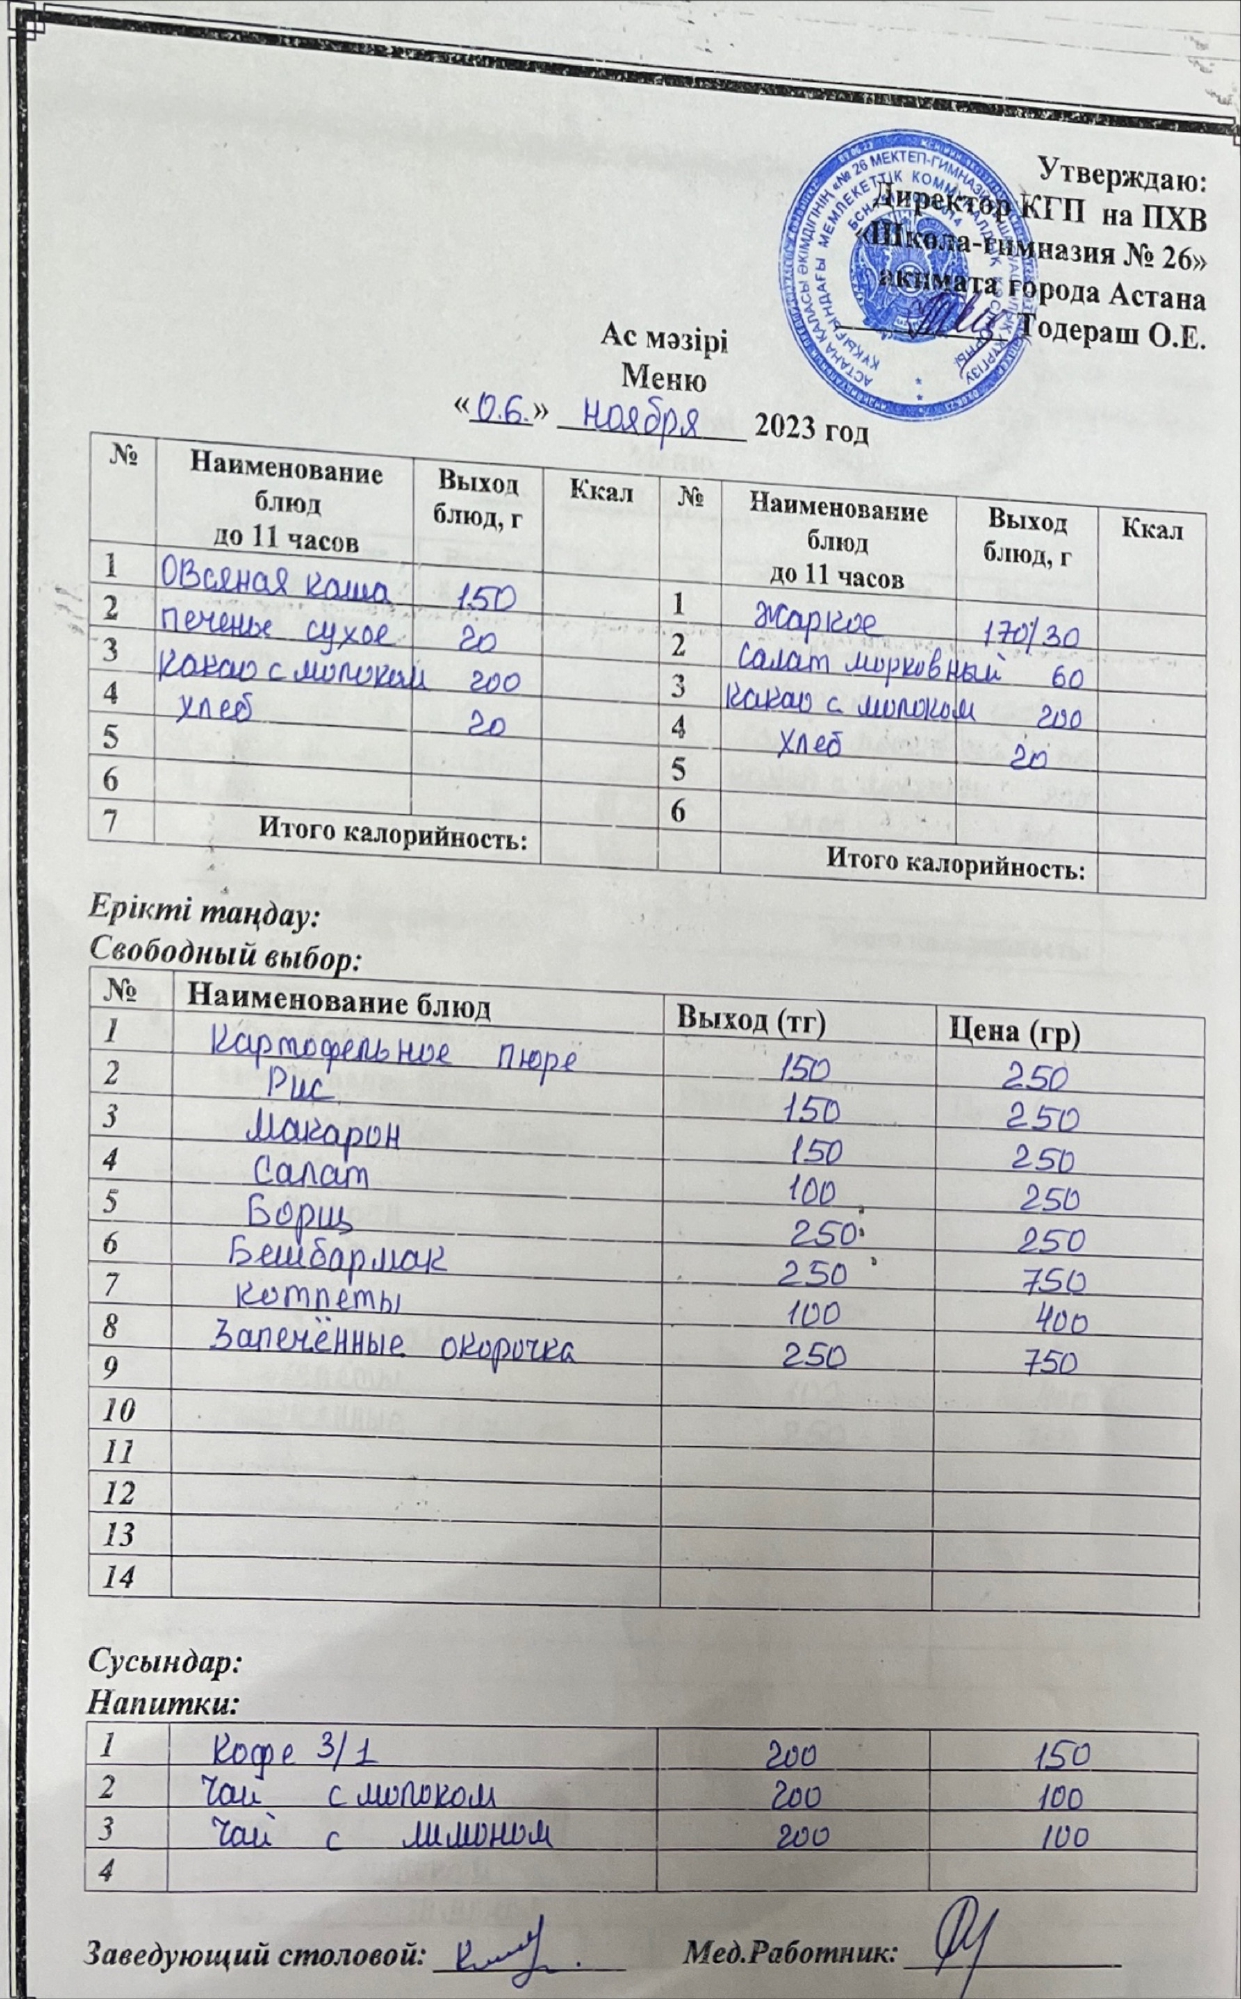 Утверждаю:
Директор КГП на ПХВ
«Школа-гимназия № 26»
акимата города Астана
Тодераш О.Е.
Ас мәзірі
Меню
«06» ноября 2023 год
№ Наименование блюд до 11 часов Выход блюд, г Ккал № Наименование блюд до 11 часов Выход блюд, г Ккал
1 Овсяная каша 150 1 Жаркое 170/30
2 печенье сухое 20 2 Салат морковный 60
3 какао с молоком 200 3 какао с молоком 200
4 хлеб 20 4 хлеб 20
5 5
6 6
7 Итого калорийность: Итого калорийность:
Ерікті таңдау:
Свободный выбор:
№ Наименование блюд Выход (тг) Цена (гр)
1 Картофельное пюре 150 250
2 Рис 150 250
3 Макарон 150 250
4 Салат 100 250
5 Борщ 250 250
6 Бешбармак 250 750
7 котлеты 100 400
8 Запечённые окорочка 250 750
9
10
11
12
13
14
Сусындар:
Напитки:
1 Кофе 3/1 200 150
2 Чай с молоком 200 100
3 Чай с лимоном 200 100
4
Заведующий столовой: Мед.Работник: